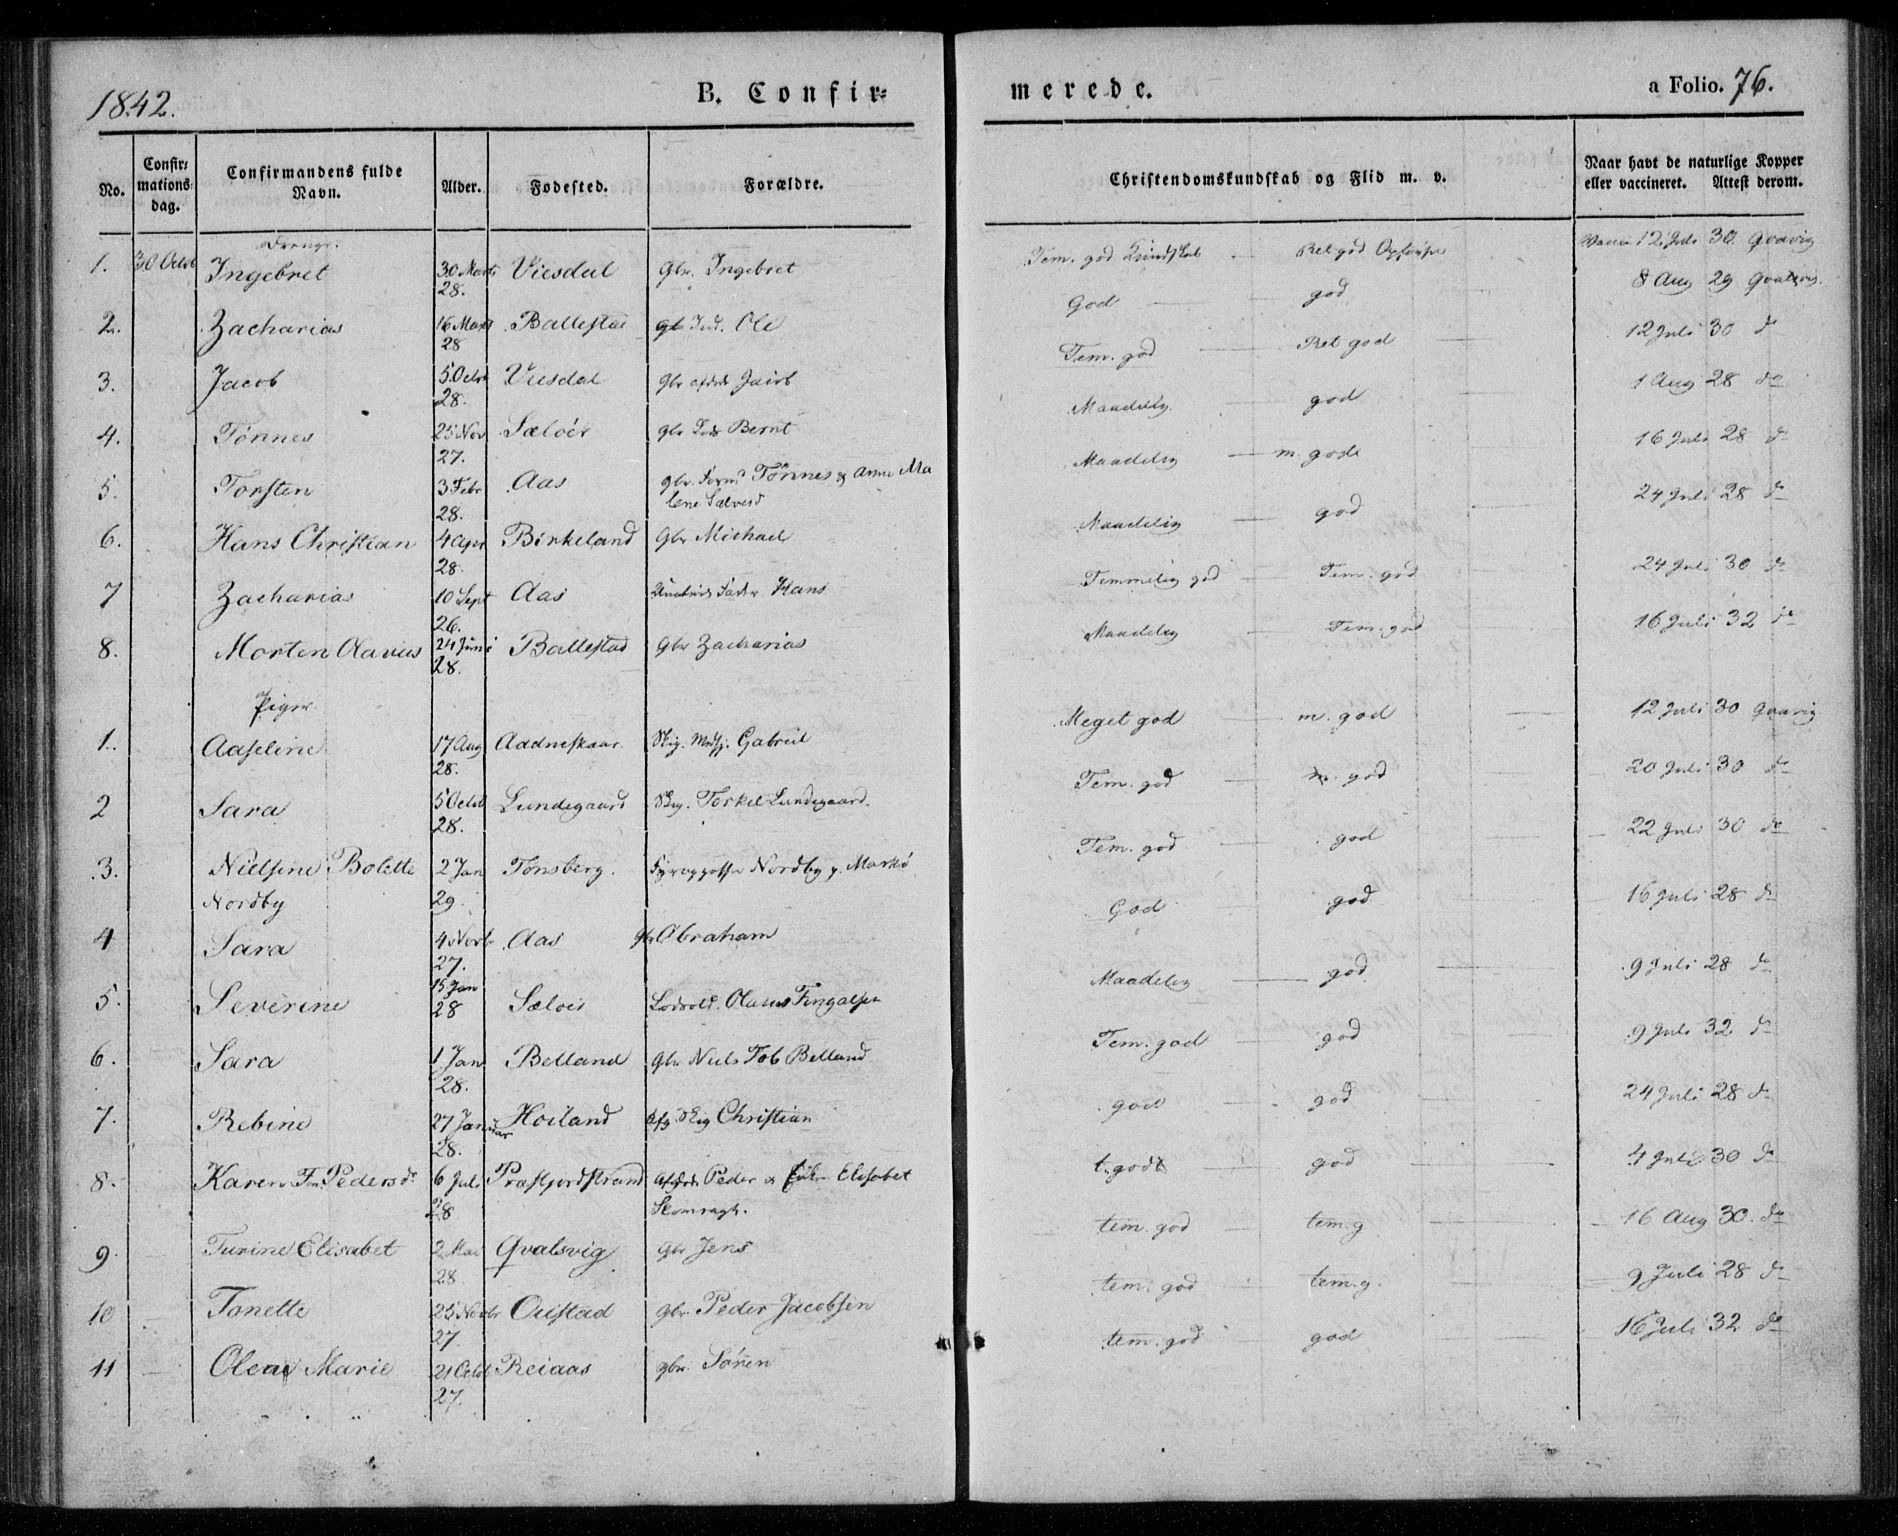 1842.
B. Confir=
merede.
a Folio. 76.
No.
Confir=
mations
dag.
Confirmandens fulde
Navn.
Alder.
Fødested.
Forældre.
Christendomskundskab og Flid m. v.
Naar havt de naturlige Kopper
eller vaccineret. Attest derom.
Drenge.
1. 30 Octob Ingebret 30 Marts 28. Viesdal Gbr. Ingebret
Tem. god Kundskab Ret god Opførsel
12 Juli 30.
2. Zacharias 16 Marts 28 Ballestad Ole
God god
8 Aug 29
3. Jacob 5. Octob 28. Viesdal Gbr Jacob
Tem. god Ret god
12 Juli 30 do
4. Tønnes 25 Nov 27. Sæløer gbr Bernt
Maadelig god
1 Aug 28 do
5. Torsten 3 Febr 28. Aas gbr. Tønnes & Anne Ma
lene
Maadelig m. god
16 Juli 28 do
6. Hans Christian 4 Apr 28. Birkeland Gbr Michael
Maadelig god
24 Juli 28 do
7 Zacharias 10 Sept 26. Aas Hans
Temmelig god Tem. god
24 Juli 30 do
8. Morten Olavus 24 Juni 28. Ballestad Gbr Zacharias
Maadelig Tem. god
16 Juli 32 do
Piger.
1. Aaseline 17 Aug 28. Aadneskaar Gabriel
Meget god m. god
12 Juli 30
2 Sara 5 Octob 28. Lundegaard Torkel Lundegaard.
Tem. god m. god
20 Juli 30 do
3. Nielsine Bolette 2 Jan Tønsberg. Nordby p. Markø
Nordby 29.
Tem. god god
22 Juli 30 do
4 Sara 4 Novbr 27. Aas Gbr Abraham
God god
16 Juli 28 do
5. Severine 15 Jan 28 Sæløer Olaus Fingalsen
Maadelig god
9 Juli 28 do
6. Sara 1 Jan 28. Belland Gbr Niels Tob Belland
Tem. god god
9 Juli 32 do
7. Rebine 27 Januar 28. Høiland Christian
god god
24 Juli 28 do
8. Karen Peders d. 6 Juli 28 Præstjordstrand Peder & Elisabet
t. godt god
4 Juli 30 do
9. Turine Elisabet 2 Mai 28. Qvalsvig Gbr Jens
tem. god tem. g
16 Aug 30. do
10 Tonette 25 Novbr 27 Ouistad gbr. Peder Jacobsen
tem. god tem. g.
9 Juli 28 do
11 Olene Marie 21 Octob 27. Reiaas gbr. Sören
tem. god god
16 Juli 32 do